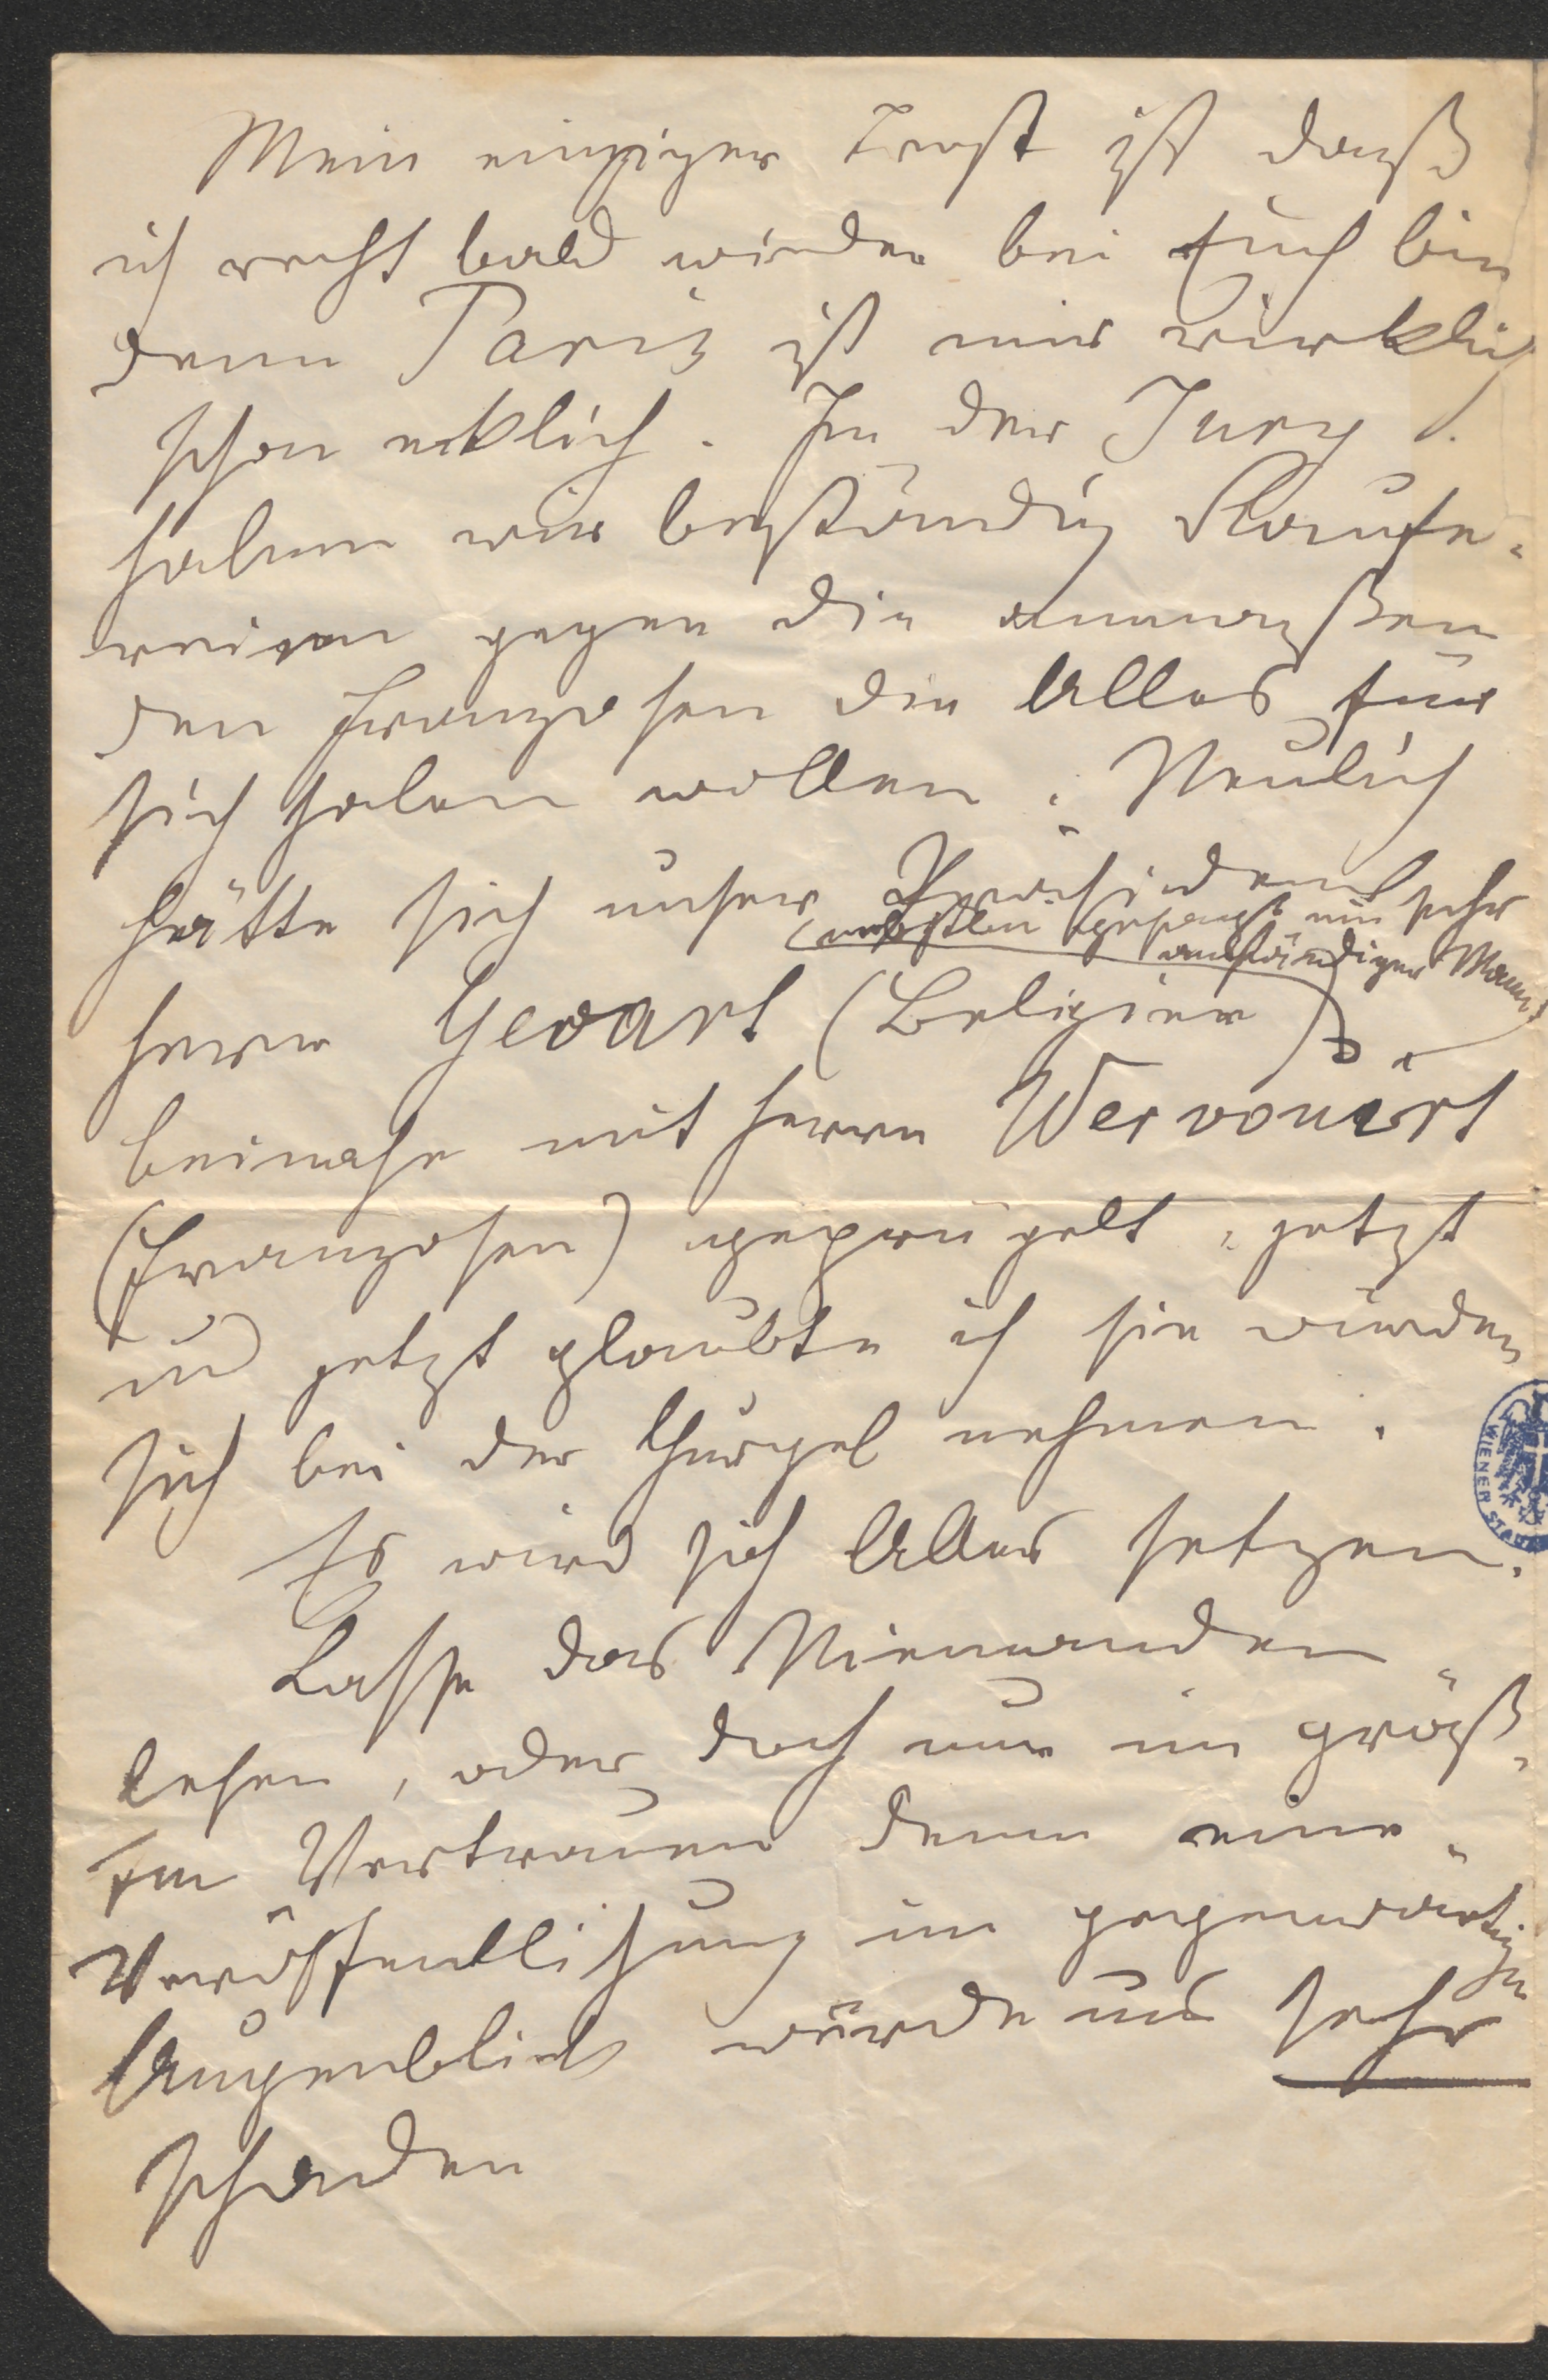 Mein einziger Trost ist daß
ich recht bald wieder bei Euch bin
denn Paris ist mir wirklich
schon eklich. In der Jury
haben wir beständig Raufe-
reien gegen die anmaßen
den Franzosen die Alles für
sich haben wollen. Neulich
hätte sich unser Präsident
(nebstbei gesagt ein sehr
anständiger Mann)
Herr Gevart (Belgier)
beinahe mit Herrn Wervouert
(Franzosen) geprügelt, jetzt
und jetzt glaubte ich sie würden
sich bei der Gurgel nehmen.
Es wird sich Alles setzen.
Lasse das Niemanden
lesen, oder doch nur im größ-
ten Vertrauen denn eine
Veröffentlichung im gegenwärtigen
Augenblick würde uns sehr
schaden
WIENER STADT